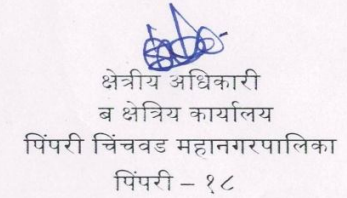 क्षेत्रीय अधिकारी
ब क्षेत्रिय कार्यालय
पिंपरी चिंचवड महानगरपालिका
पिंपरी – १८